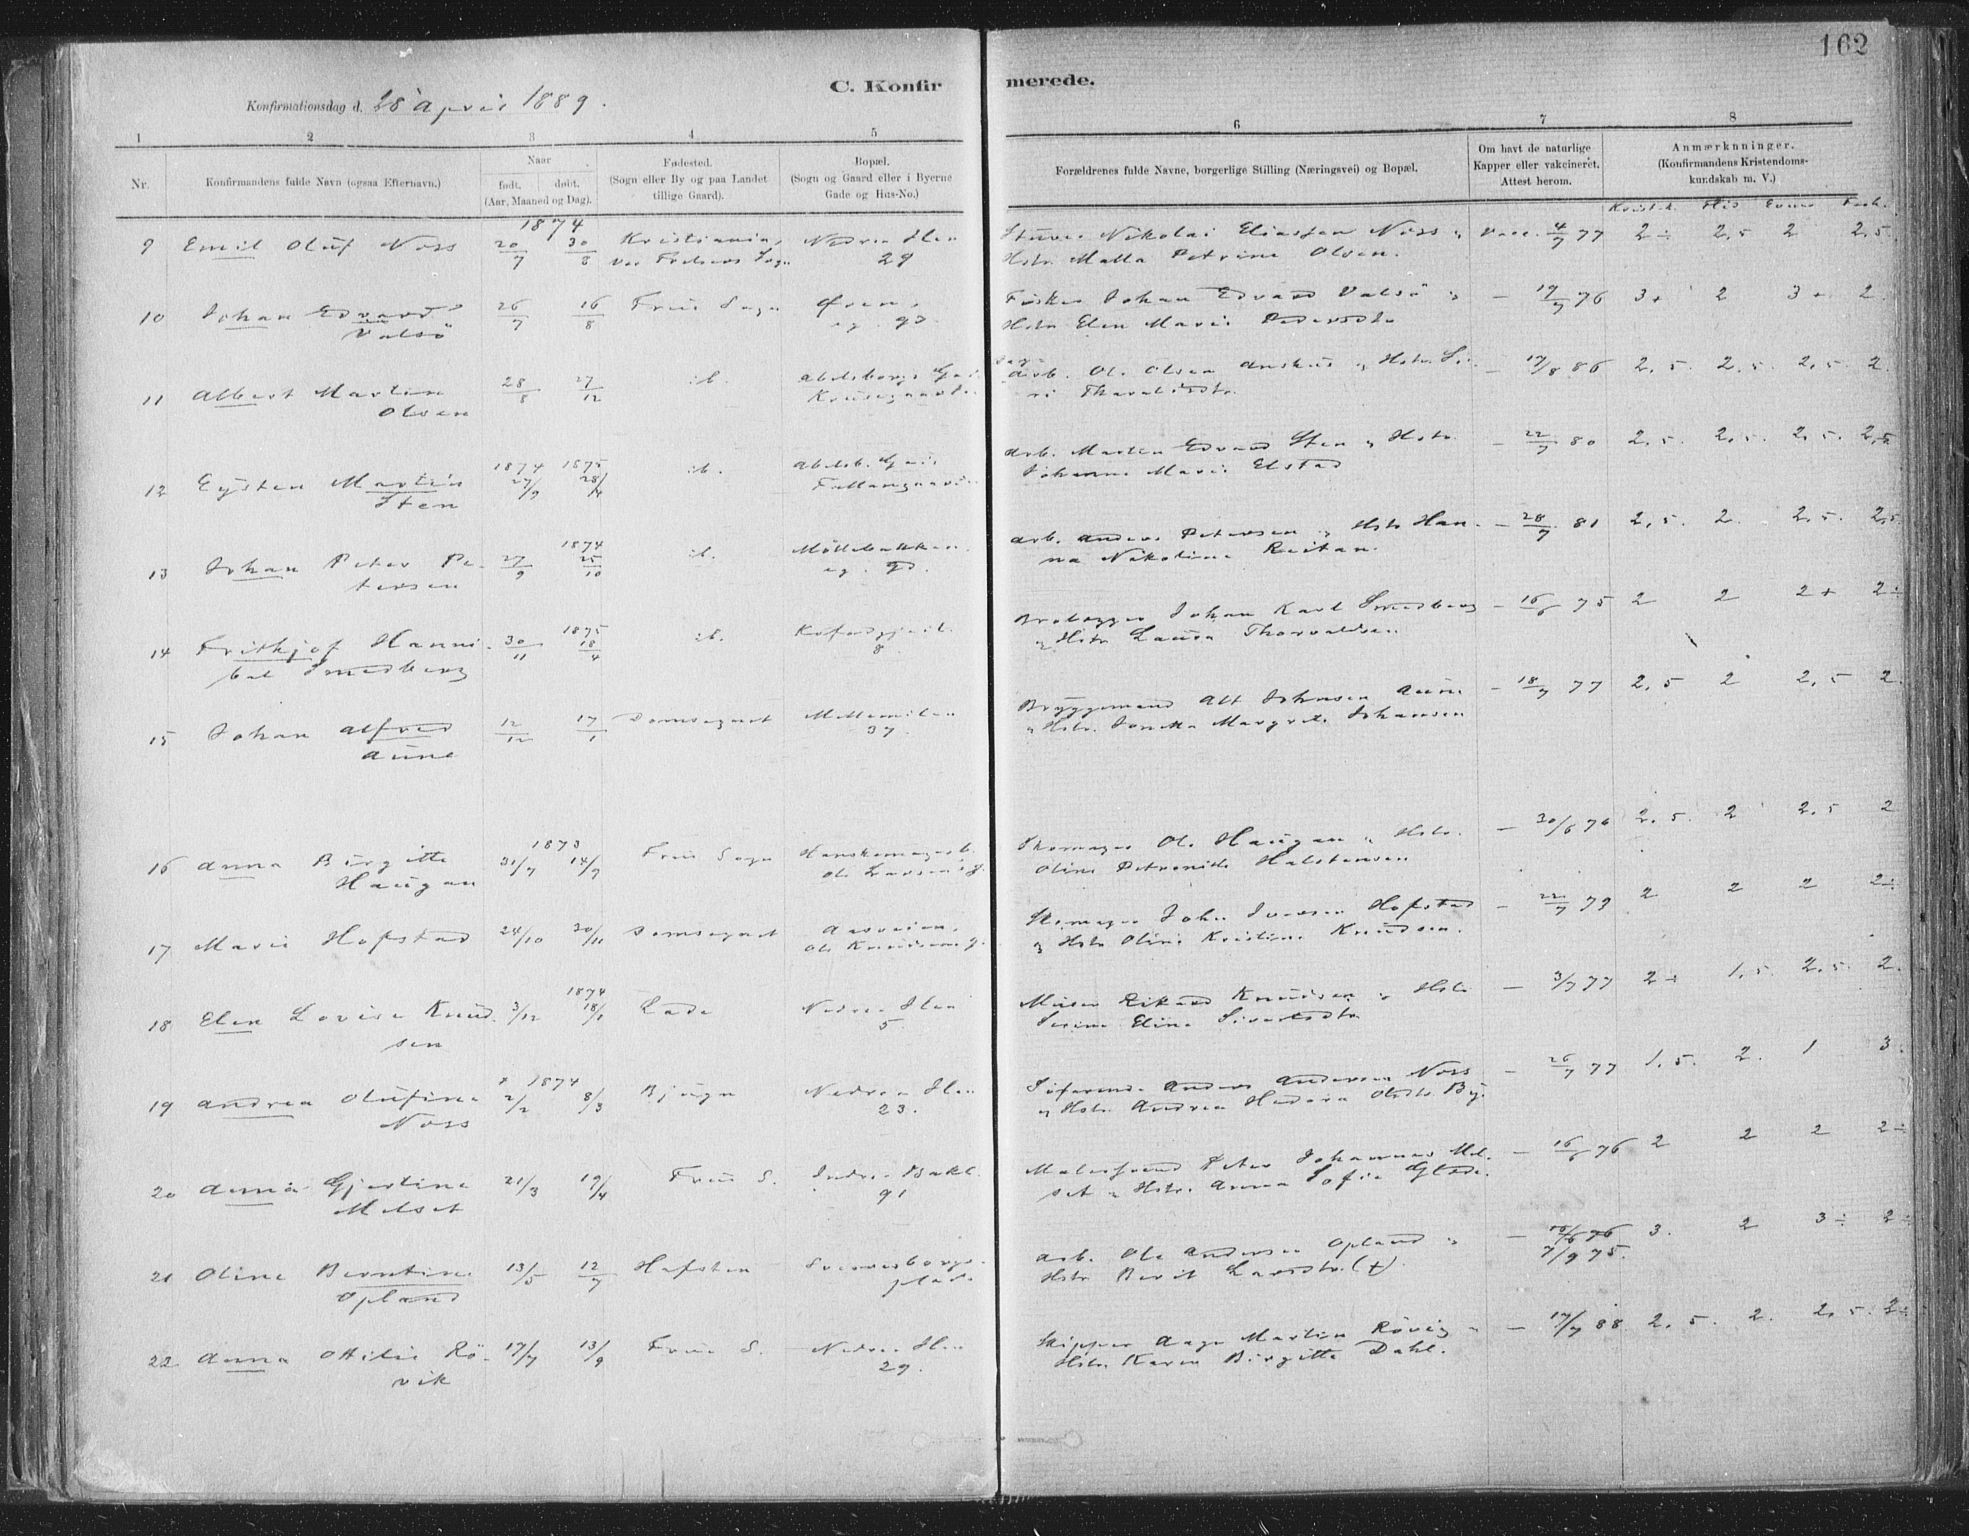 162
C. Konfir merede.
Konfirmationsdag d. 28 april 1889.
1 2 3 4 5 6 7 8
Nr.
Konfirmandens fulde Navn (ogsaa Efternavn).
Naar
født. døbt.
(Aar, Maaned og Dag).
Fødested.
(Sogn eller By og paa Landet
tillige Gaard).
Bopæl.
(Sogn og Gaard eller i Byerne
Gade og Hus-No.)
Forældrenes fulde Navne, borgerlige Stilling (Næringsvei) og Bopæl.
Om havt de naturlige
Kapper eller vakcineret.
Attest herom.
Anmærkninger.
(Konfirmandens Kristendoms-
kundskab m. V.)
Kristk. Flid Evner Forh.
1874
9 Emil Oluf Noss 20/7 30/8 Kristiania, Nedre Ilen Nikolai Eliassen Noss Vacc. 4/7 77 2÷ 2,5 2 2,5
Vor Frelsers Sogn 29 Hstr. Malla Petrine Olsen.
10 Johan Edvard 26/7 16/8 Frue Sogn Fisker Johan Edvard Valsö – 19/7 76 3+ 2 3+ 2
Valsö eg. gd. Hstr. Elen Marie Pedersdtr
11 Albert Martin 28/8 27/12 ib. arb. Ole Olsen Hstr. – 17/8 86 2,5. 2,5. 2,5 2.
Olsen
1874 1875
12 Eysten Martin 27/9 28/4 ib. arb. Martin Edvard Sten Hstr. – 22/7 80 2,5. 2,5. 2,5. 2,5
Sten Johanna Marie Elstad
1874
13 Johan Peter Pe- 27/9 25/10 ib. Möllebakken arb. Anders Petersen Hstr Han- – 28/7 81 2,5. 2. 2,5. 2,5.
tersen eg. gd. na Nikoline Reitan.
1875
14 Frithjof Hanni- 30/11 18/4 ib. Johan Karl Smedberg – 16/6 75 2 2 2+ 2÷
bal Smedberg 8 Hstr Laura Thorvaldsen
15 Johan Alfred 12/12 17/1 Domsognet Mellemilen Bryggemand Johnsen Aune – 18/7 77 2,5 2 2,5 2.
Aune 37. Hstr. Margrete Johansen
1873
16 Anna Birgitte 31/7 14/9 Frue Sogn Skomager Ole Haugan Hstr. – 30/6 76 2,5. 2 2,5 2
Haugan Ole Larsens g. Oline Petronille Halstensen
17 Marie Hofstad 24/10 30/11 Domsognet Skomager John Iversen Hofstad – 22/7 79 2 2 2 2÷
Ole Knudsens g. Hstr Oline Kristine Knudsen.
1874
18 Elen Lovise Knud- 3/12 18/1 Lade Nedre Ilen Murer Rikard Knudsen Hstr – 3/7 77 2÷ 1,5. 2,5. 2.
sen 5 Elina Sivertsdtr
1874
19 Andrea Olufine 2/2 8/3 Bjugn Nedre Ilen Søfarende Anders Andersen Noss – 26/7 77 1,5. 2. 1 3.
Noss 23. Hstr. Andrea
20 Anna Gjertine 21/3 19/4 Frue S. Indre Bakl. Malersvend Peter Johannes Mel- – 16/6 76 2 2 2 2÷
Melset 91 set Hstr. Anna Sofie
21 Oline Berntine 13/5 12/7 Hafsten Sverresborgs arb. Ole Andersen Opland – 16/6 76 3. 2 3÷ 2÷
Opland plads Hstr Berit Larsdtr. (+). 7/9 75.
22 Anna Ottilie Rö- 17/7 13/9 Frue S. Nedre Ilen Skipper Aage Martin Rövig – 17/7 88 2,5. 2. 2,5. 2÷
vik 29. Hstr. Karen Birgitte Dahl.